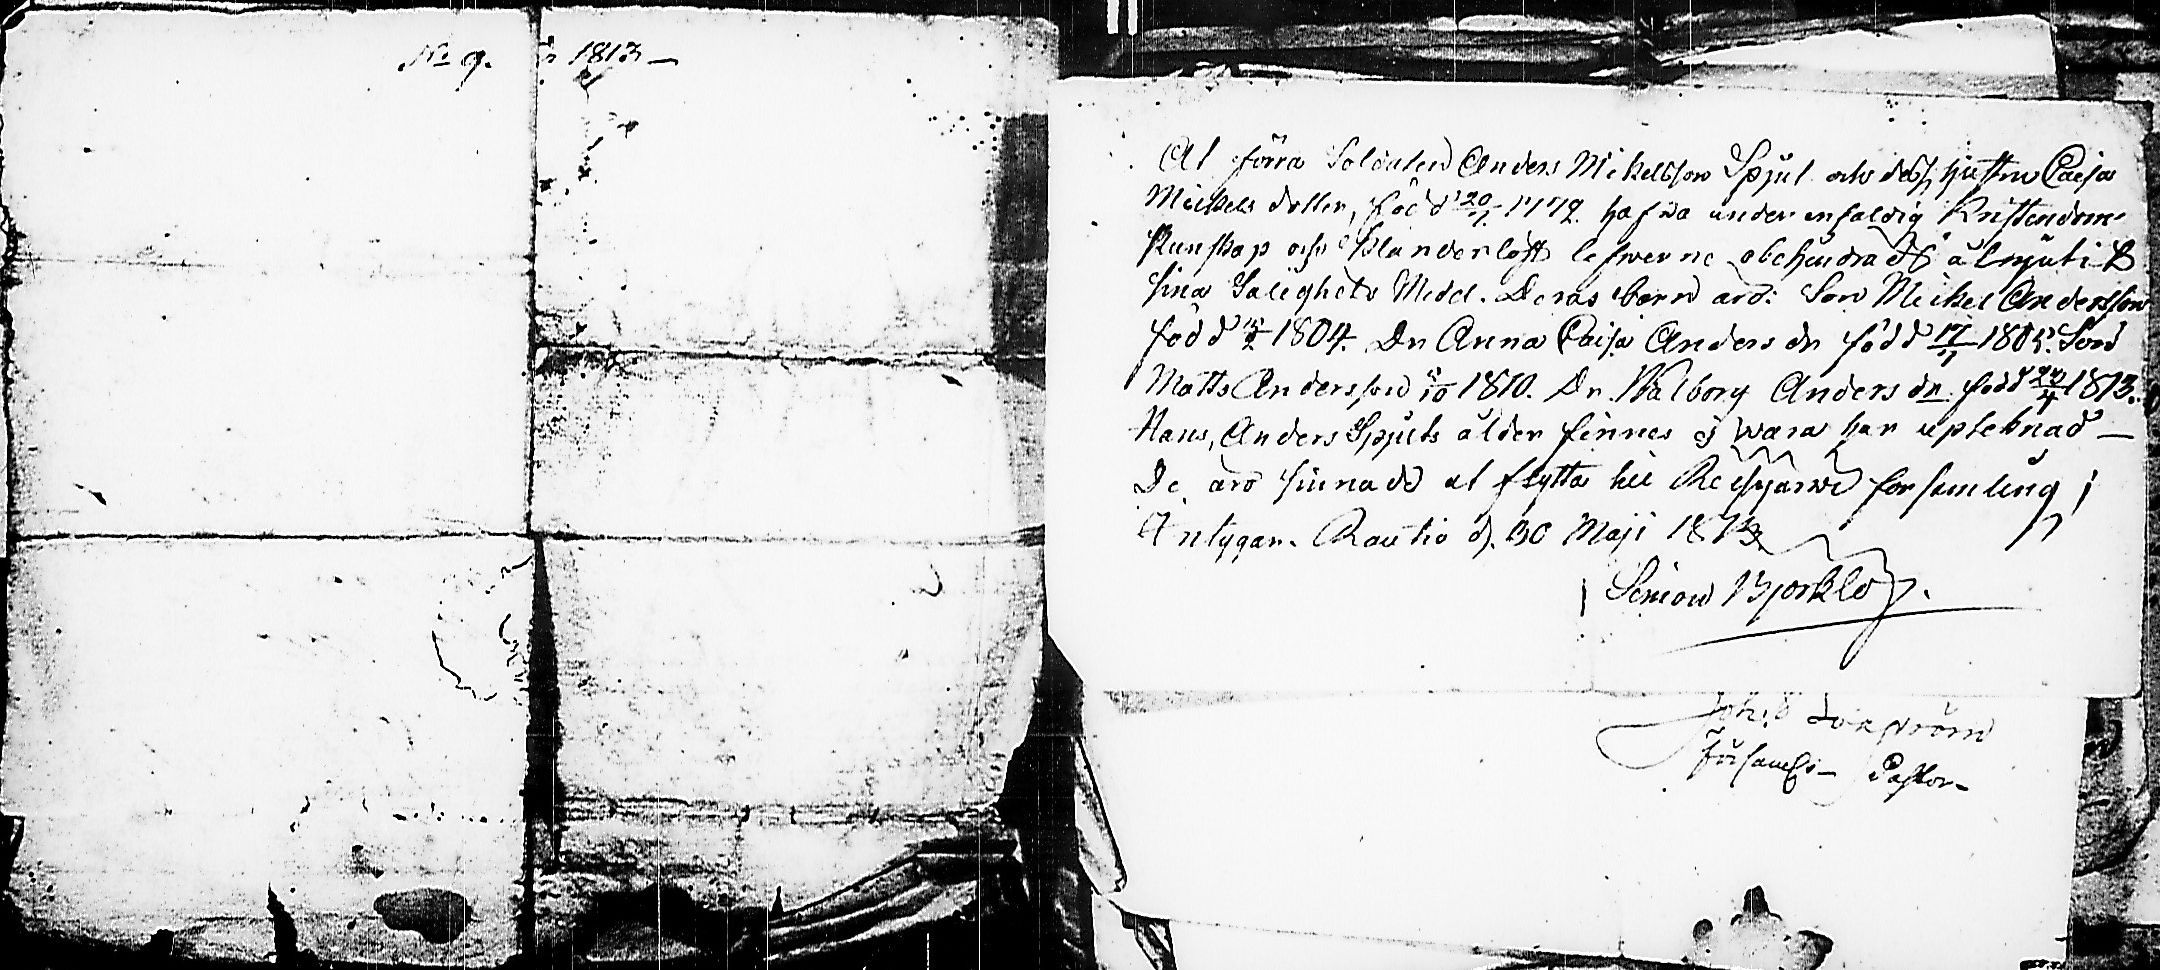 No 9. 1813 —
At förra Soldaten Anders Mikelsson Spjut och dess hustru Caisa
Mickels dotter, född 20/1 1772 hafwa under enfaldig Kristendoms
kunskap och klanderlöst lefwerne obehindrade åtnjutit
sina Salighets Medel. Deras barn äro: Son Mickel Andersson
född 1804. Dr Anna Caisa Anders dr född 17/11 1805. Son
Matts Andersson 1810. Dr. Walborg Anders dr. född 1813.
Hans, Anders Spjuts ålder finnes ej wara här upteknad —
De äro sinnade at flytta till Reisjärwi församling;
Intygar. Rautio d. 30 Maji 1813
Simon Björklöf.
Joh:s
Församl:s Pastor